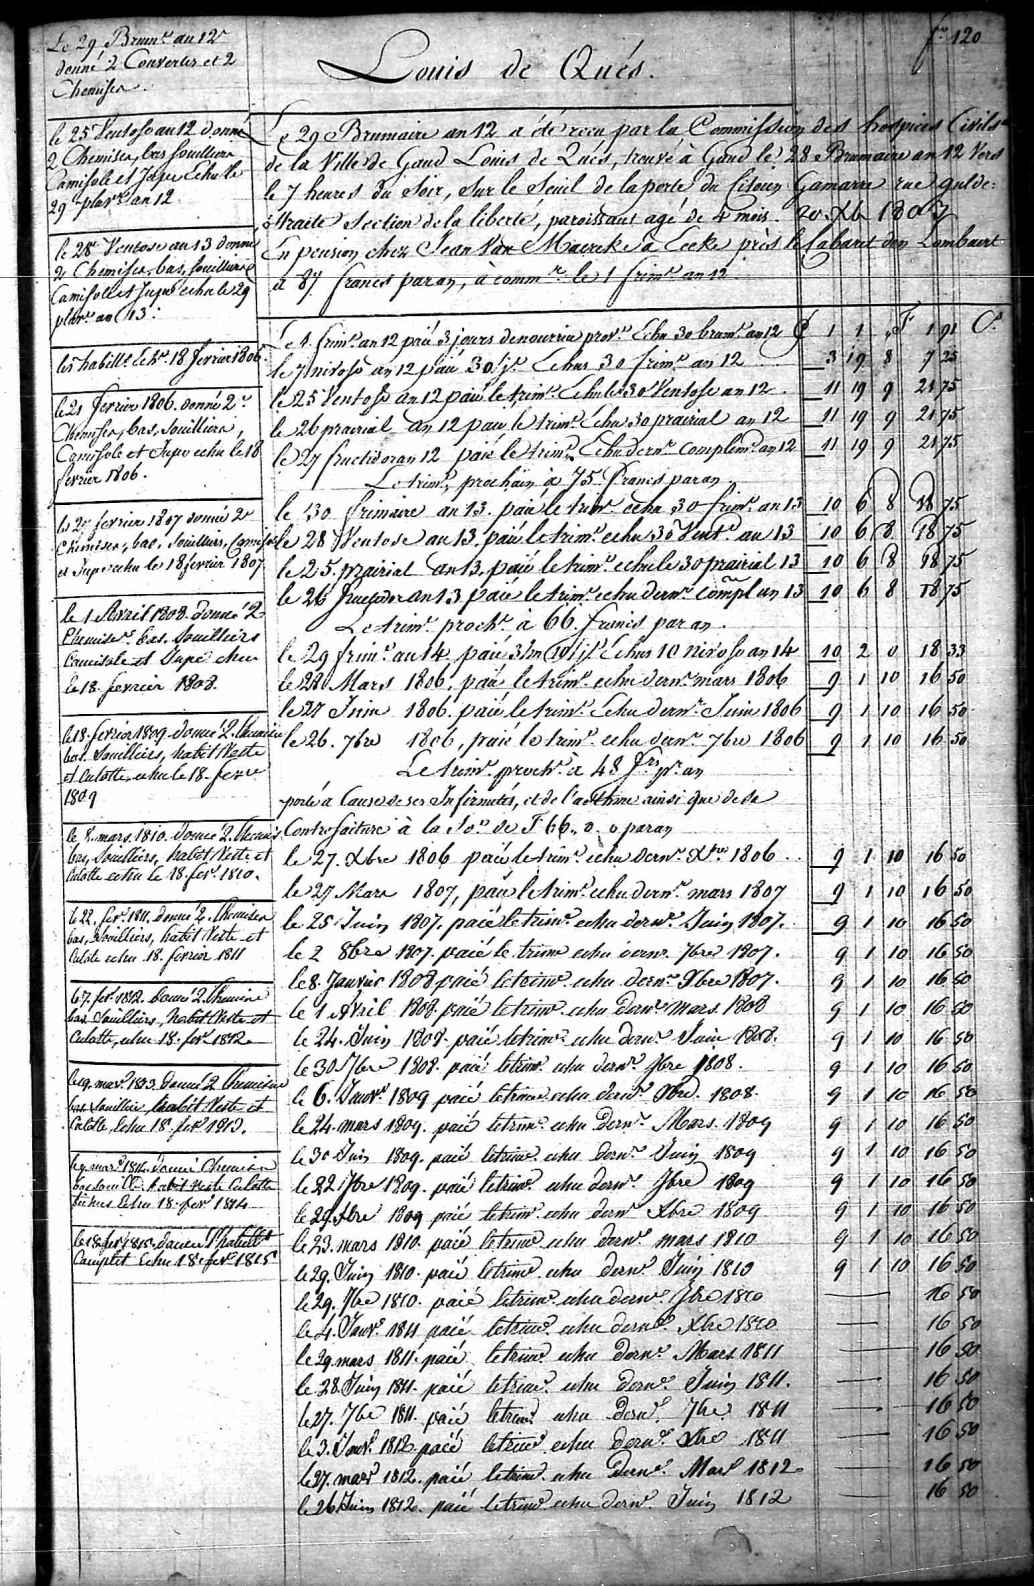 fo 120
Louis de Qués.
Le 29 Brum.e an 12
donné 2 Couvertes et 2
Chemises.
le 25 Ventose an 12 donné
2 Chemises, bas souilliers
Camisole et Jupe echu le
29 pluv.e an 12
le 28e Ventose an 13 donné
2 Chemises, bas, souilliers
Camisole et Jupe echu le 29
pluv.e an 13.
les habill. Ech. 18 fevrier 1806
le 21 fevrier 1806. donné 2
Chemises, bas, souilliers,
Camisole et Jupe echu le 18
fevrier 1806.
le 27 fevrier 1807 donné 2
Chemises, bas, souilliers, Camisole
et Jupe echu le 18 fevrier 1807
le 1 Avril 1808. donné 2
Chemises bas. souilliers
Camisole et Jupe echu
le 18. fevrier 1808.
le 18. fevrier 1809. donné 2. Chemises
bas. Souilliers, habit Veste
et Culotte, echu le 18. fevre
1809
le 8. mars. 1810. donné 2. Chemises
bas, Souilliers, habit Veste et
Culotte echu le 18. fev. 1810.
le 22. fev. 1811. donné 2. Chemises
bas, Souilliers, habit Veste et
Culotte echu 18. fevrier 1811
le 7. fev. 1812. donné 2. Chemises
bas Souilliers, habit Veste et
Culotte, echu 18. fev. 1812
le 9. mars. 1813. donné 2 Chemises
bas Souilliers habit Veste et
Culotte Echu 18. fev. 1813.
le 9. mars 1814. donné Chemises
bas souill. habit Veste Culotte
echu 18. fev. 1814
le 18 fev. 1815. donné l'habill.t
Complet Echu 18 fev. 1815
Le 29 Brumaire an 12 a été recu par la Commission des hospices Civils
de la Ville de Gand Louis de Qués, trouvé à Gand le 28 Brumaire an 12 Vers
le 7 heures du Soir, sur le Seuil de la porte du Citoien Gamarre rue Gulde:
straite Section de la liberté, paroissant agé de 4 mois. 20 Xb 1803
En pension chez Jean Van Maerck à Eecke près le Cabaret den Lombaert
à 87 francs par an, à comm.r le 1 frim.e an 12
Le 1. frim.e an 12 paié 3 jours de nourriture prov.e Echu 30 brum.e an 12 1 1 F 1 91 C.s
le 7 nivose an 12 paié 30 j.s Echus 30 frim.e an 12 3 19 8 7 25
le 25 Ventose an 12 paié le trim.e Echu le 30 Ventose an 12 11 19 9 21 75
le 26 prairial an 12 paié le trim.e Echu 30 prairial an 12 11 19 9 21 75
le 27 fructidor an 12 paié le trim.e Echu dern.r complem.re an 12 11 19 9 21 75
Le trim.e prochain à 75. francs par an
le 30 frimaire an 13. paié le trim.e echu 30 frim.e an 13 10 6 8 18 75
le 28 Ventose an 13. paié le trim.e echu 30 Vent.e an 13 10 6 8 18 75
le 25. prairial an 13. paié le trim.e echu le 30 prairial 13 10 6 8 18 75
le 26 fructidor an 13 paié le trim.e echu dern.r compl an 13 10 6 8 18 75
Le trim.e proch.n à 66. francs par an.
le 29 frim.e an 14, paié 3 m 10 j.s Echus 10 nivose an 14 10 2 0 18 33
le 28 Mars 1806, paié le trim.e echu dern.r mars 1806 9 1 10 16 50
le 27 Juin 1806. paié le trim.e Echu dern.r Juin 1806 9 1 10 16 50
le 26. 7bre 1806, paié le trim.e echu dern.r 7bre 1806 9 1 10 16 50
Le trim.e proch.n à 48 fr.s p.r an
porté à Cause de ses Infirmités, et de l'asthme ainsi que de sa
Contrefaiture à la So.e de F 66. 0. 0 par an
le 27. Xbre 1806 paié le trim.e echu dern.r Xbre 1806 9 1 10 16 50
le 27 Mars 1807, paié le trim.e echu dern.r mars 1807 9 1 10 16 50
le 25 Juin 1807. paié le trim.e echu dern.r Juin 1807. 9 1 10 16 50
le 2 8bre 1807. paié le trim.e echu dern.r 7bre 1807. 9 1 10 16 50
le 8. Janvier 1808 paié le trim.e echu dern.r Xbre 1807. 9 1 10 16 50
le 1 Avril 1808. paié le trim.e echu dern.r mars. 1808 9 1 10 16 50
le 24. Juin 1808. paié le trim.e echu dern.r Juin 1808. 9 1 10 16 50
le 30 7bre 1808. paié le trim.e echu dern.r 7bre 1808. 9 1 10 16 50
le 6. Janv.r 1809 paié le trim.e echu dern.r Xbre. 1808. 9 1 10 16 50
le 24. mars 1809. paié le trim.e echu dern.r Mars. 1809 9 1 10 16 50
le 30 Juin 1809. paié le trim.e echu dern.r Juin 1809 9 1 10 16 50
le 22 7bre 1809. paié le trim.e echu dern.r 7bre 1809 9 1 10 16 50
le 29 Xbre 1809 paié le trim.e echu dern.r Xbre 1809 9 1 10 16 50
le 23. mars 1810. paié le trim.e echu dern.r mars 1810 9 1 10 16 50
le 29. Juin 1810. paié le trim.e echu dern.r Juin 1810 9 1 10 16 50
le 29. 7bre 1810. paié le trim.e echu dern.r 7bre 1810 16 50
le 4. Janv.r 1811 paié le trim.e echu dern.r Xbre 1810 16 50
le 29 mars 1811. paié le trim.e echu dern.r Mars 1811 16 50
le 28. Juin 1811. paié le trim.e echu dern.r Juin 1811. 16 50
le 27. 7bre 1811. paié le trim.e echu dern.r 7bre 1811 16 50
le 3. Janv.r 1812 paié le trim.e echu dern.r Xbre 1811 16 50
le 27. mars 1812. paié le trim.e echu dern.r Mars 1812 16 50
le 26 Juin 1812. paié le trim.e echu dern.r Juin 1812 16 50